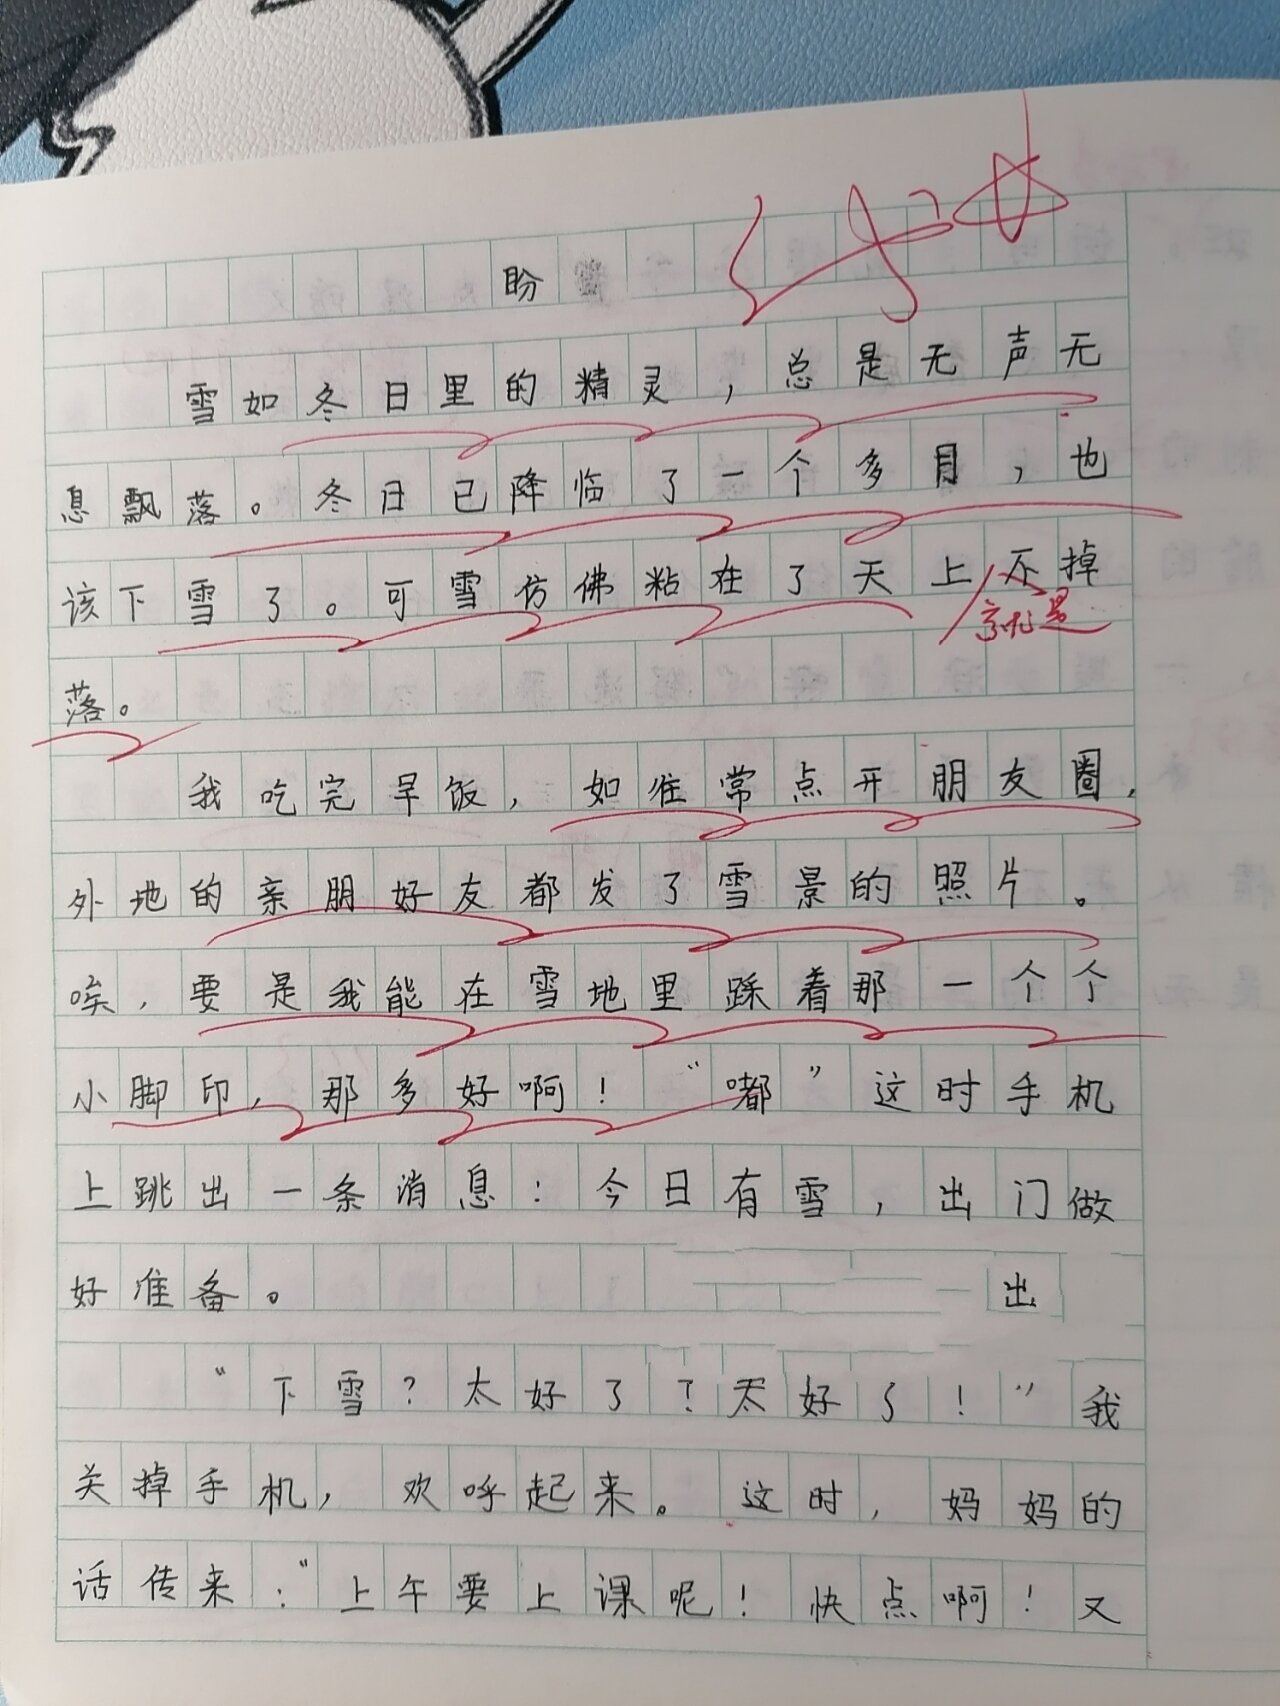 盼雪
雪如冬日里的精灵，总是无声无
息飘落。冬日已降临了一个多月，也
该下雪了。可雪仿佛粘在了天上不掉
就是
落。
我吃完早饭，如往常点开朋友圈，
外地的亲朋好友都发了雪景的照片。
唉，要是我能在雪地里踩着那一个个
小脚印，那多好啊！“嘟”这时手机
上跳出一条消息：今日有雪，出门做
好准备。 出
“下雪？太好了！太好了！”我
关掉手机，欢呼起来。这时，妈妈的
话传来：“上午要上课呢！快点啊！又